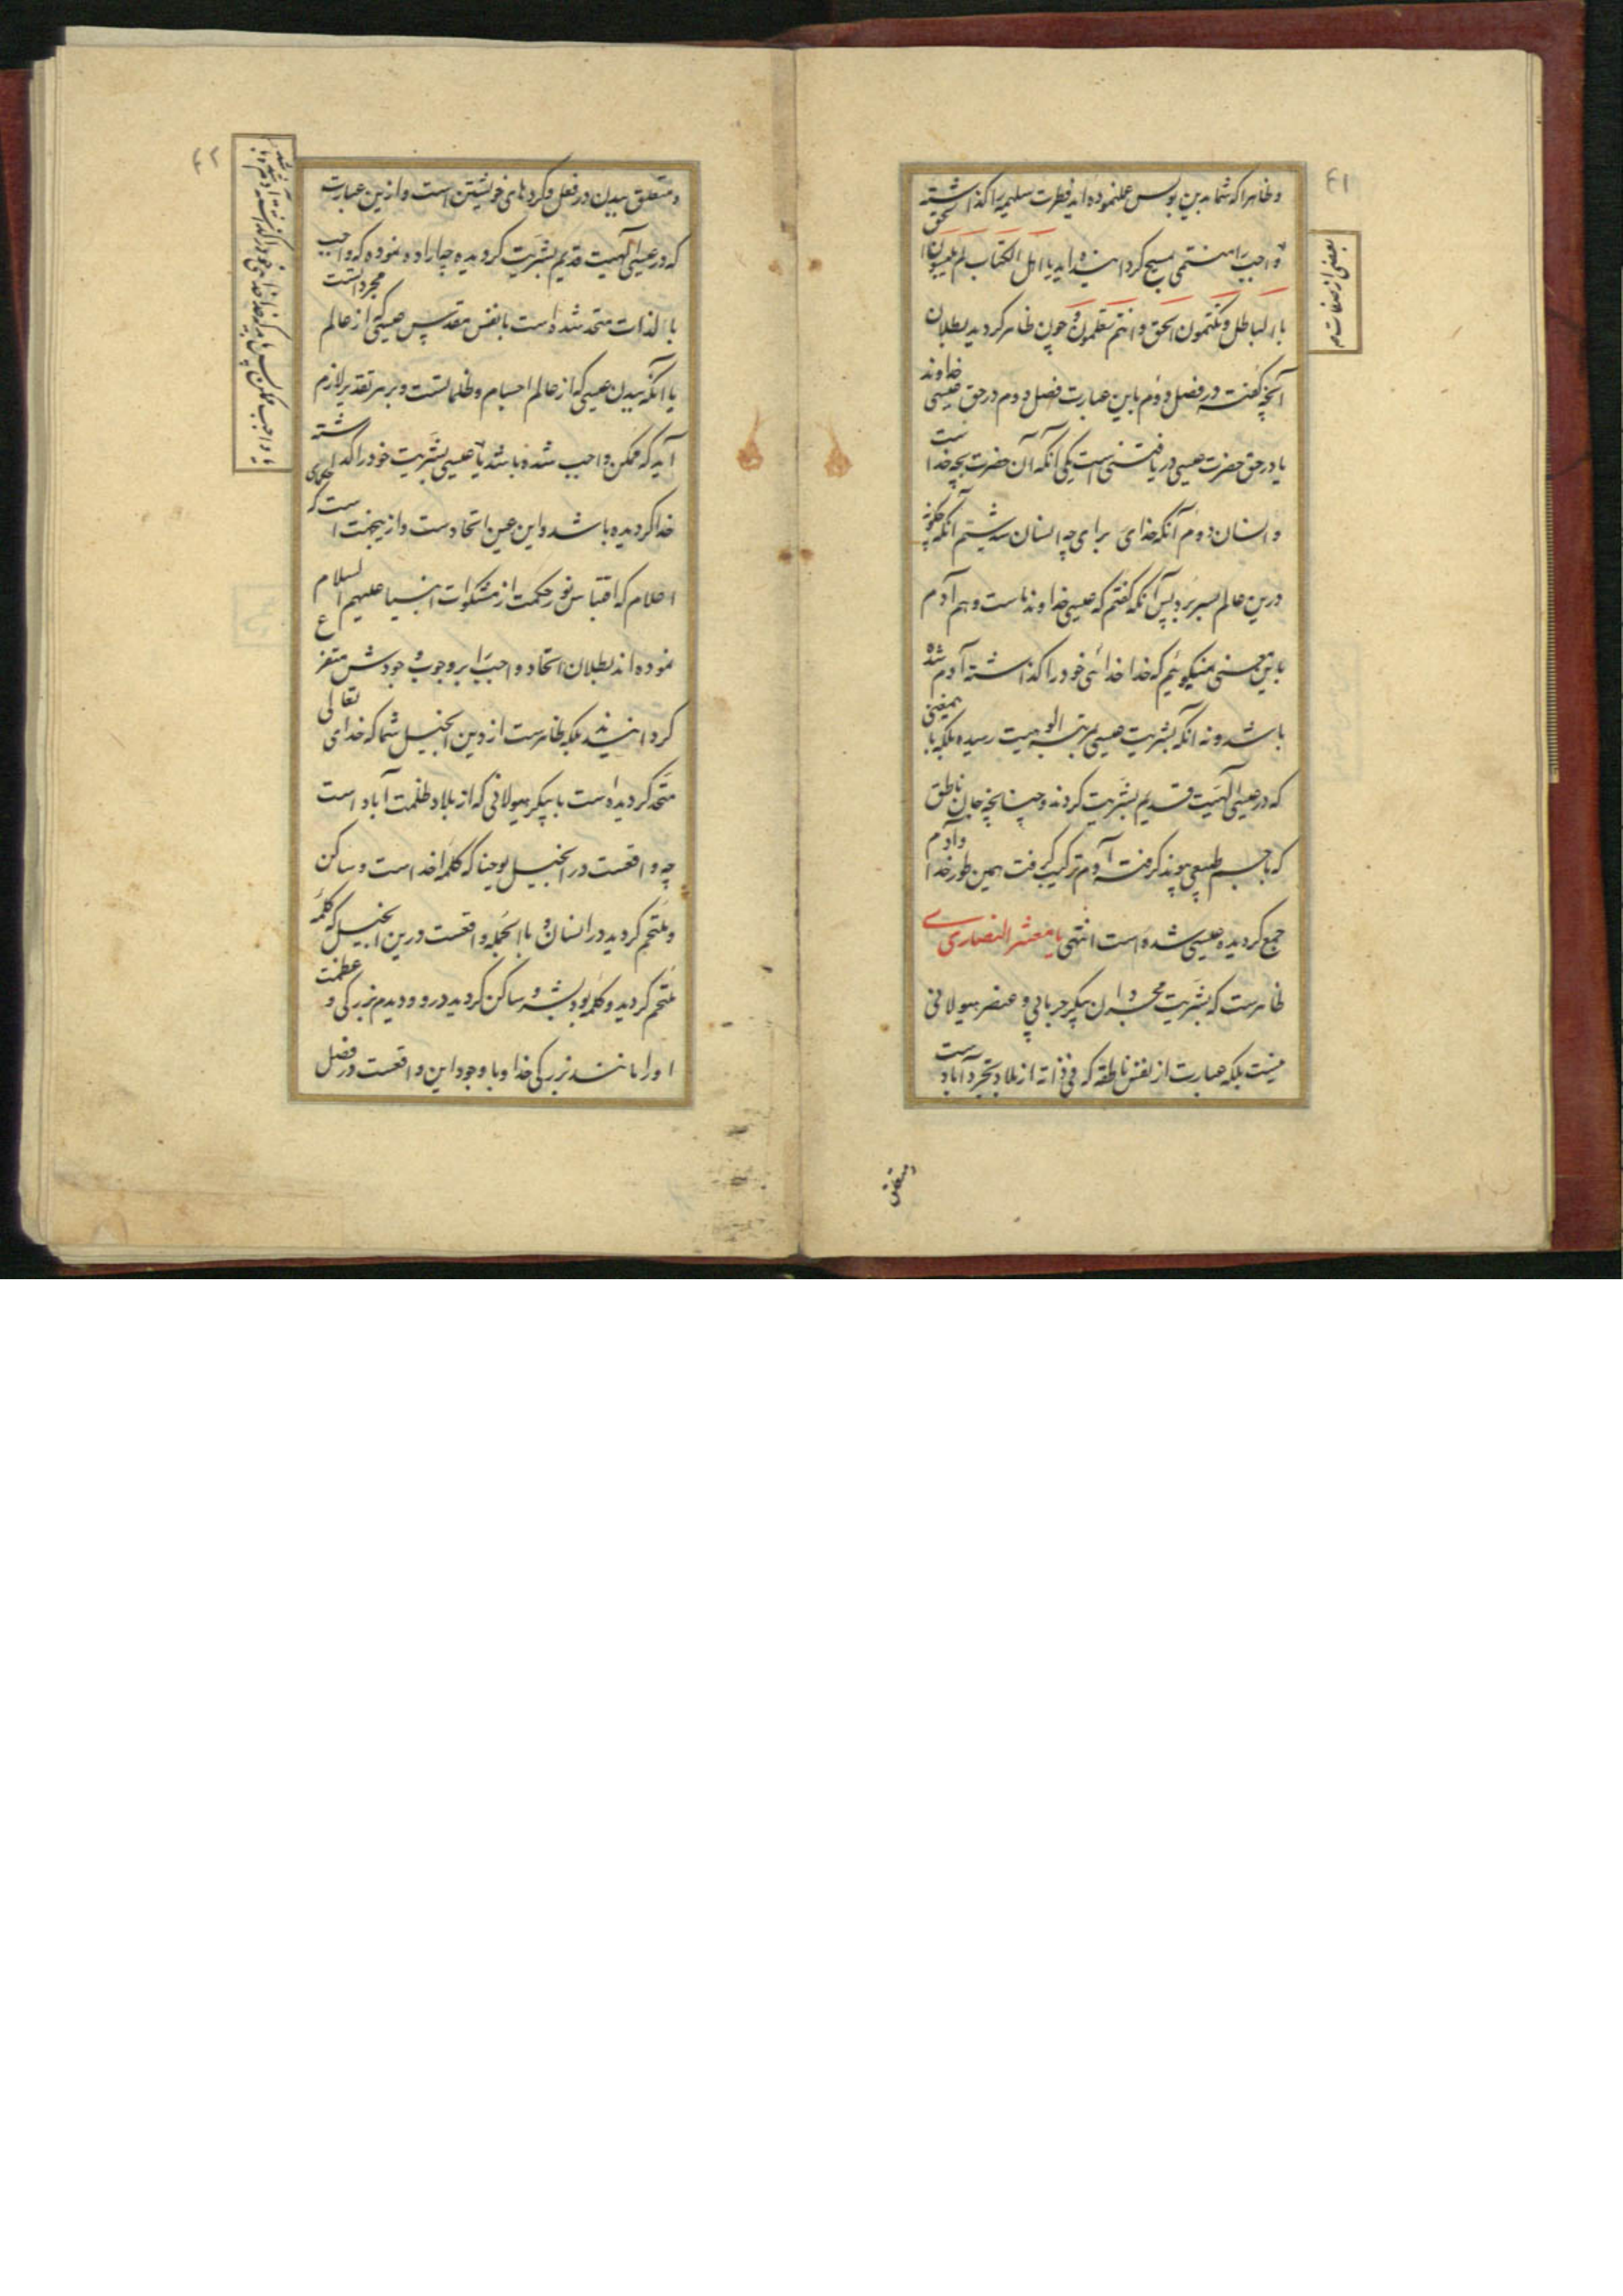 ٤١
و ظاهرا که شما بدین بولس عملنموده اید فطرت سلیمه را کذاشته
و واجب را منتهی بمسیح کردانیده اید یا اهل الکتاب لم تلبسون الحق
بالباطل و تکتمون الحق و انتم تعلمون و چون ظاهر کردید بطلان
آنچه کفته در فصل دوم باین عبارت فصل دوم در حق عیسی خداوند
یا در حق حضرت عیسی دریافتنی است یکی آنکه آن حضرت بچه خدا ست
و انسان دوم آنکه خدای برای چه انسان شد سیم آنکه چکونه
درین عالم بسر برد پس آنکه کفتم که عیسی خداوند ماست و هم آدم
باین معنی نمیکوئیم که خدا خدائی خود را کذاشته آدم شده
باشد و نه آنکه بشریت عیسی بمرتبه الوهیت رسیده بلکه باین معنی
که در عیسی الهیت قدیم بشریت کردند و چنانچه جان ناطق
که با جسم طبیعی پیوند کرفته آدم ترکیب کرفت همین طور خدا و آدم
جمع کردیده عیسی شده است انتهی یا معشر النصاری
ظاهرست که بشریت مجرد این پیکر جرمانی و عنصر هیولانی
نیست بلکه عبارت از نفس ناطقه که فی ذاته از بلاد تجرد آبادست
بعضی از صفات
و متعلق
٤٢
و متعلق ببدن در فعل و کردهای خویشتن است و ازین عبارت
که در عیسی الهیت قدیم بشریت کردیده چه اراده نموده که واجب
بالذات متحد شده است با نفس مقدس عیسی که از عالم مجردات است
یا آنکه ببدن عیسی که از عالم اجسام و ظلماتست و بر هر تقدیر لازم
آید که ممکن واجب شده باشد یا عیسی بشریت خود را کذاشته
خدا کردیده باشد و این عین اتحادست و ازینجهت است که حکمای
اعلام که اقتباس نور حکمت از مشکوات انبیا علیهم السلام
نموده اند بطلان اتحاد واجب را بر وجوب وجودش متفرع
کردانیدند بلکه ظاهرست ازین انجیل شما که خدای تعالی
متحد کردیده است با پیکر هیولانی که از بلاد ظلمت آباد است
چه واقعست در انجیل یوحنا که کلمه خداست و ساکن
و ملتحم کردید در انسان و بالجمله واقعست درین انجیل که کلمه
ملتحم کردید و کلمه بود بشر و ساکن کردید در و و دیدم بزرکی و عظمت
او را مانند بزرکی خدا و با وجود این واقعست در فصل